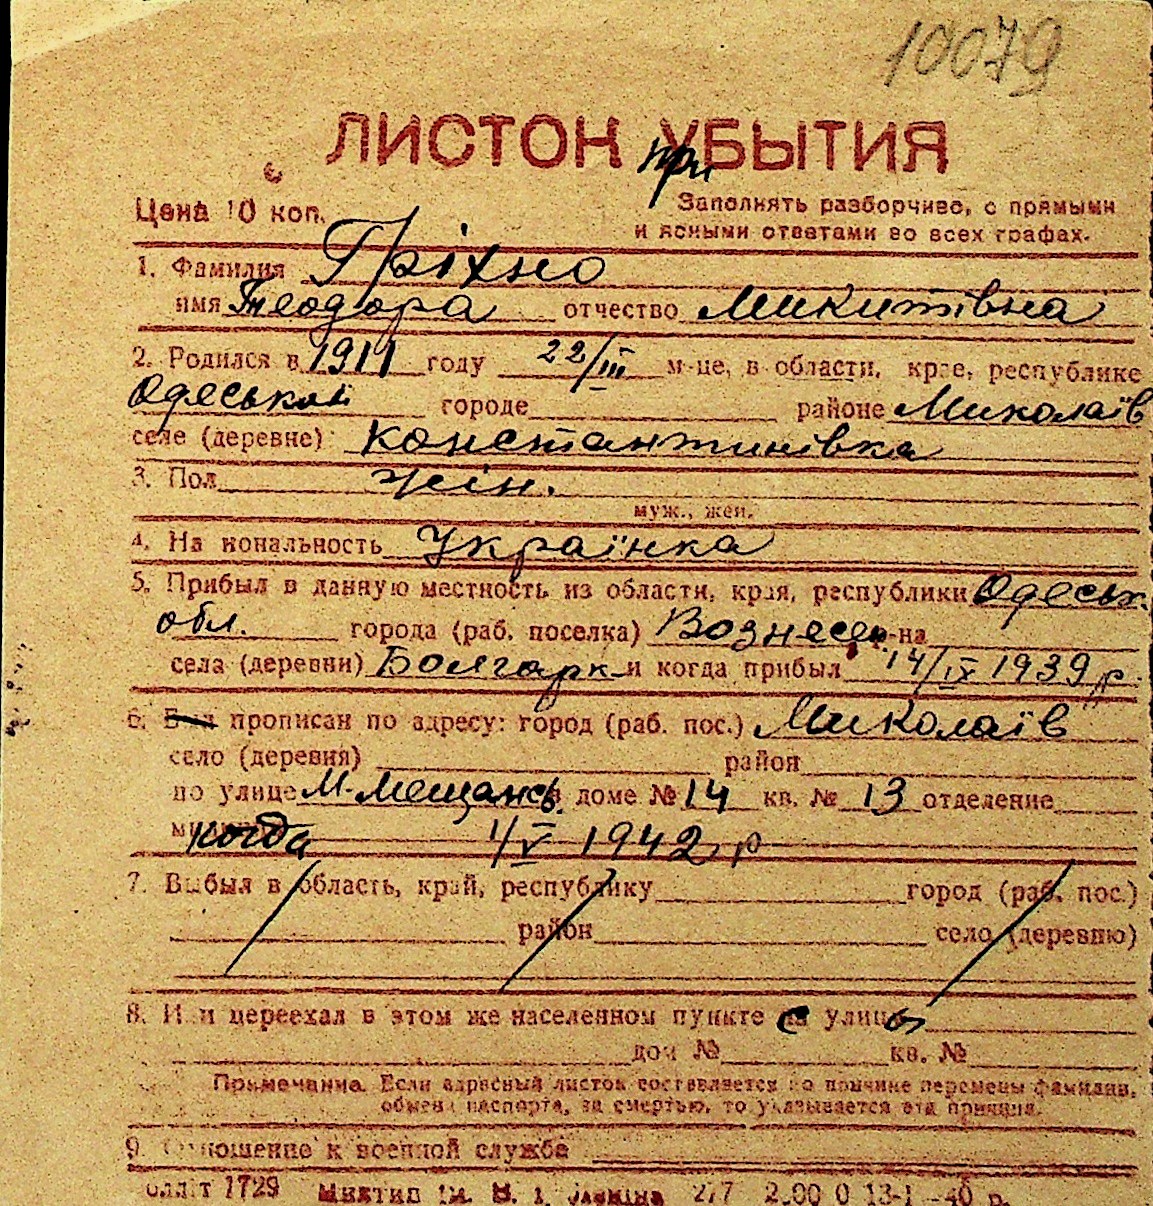 10079
ЛИСТОК при УБЫТИЯ
Цена 10 коп.
Заполнять разборчиво, с прямыми
и ясными ответами во всех графах.
1. Фамилия Гріхно
имя Теодора отчество Микитівна
2. Родился в 1911 году 22/III м-це, в области, крае, республике
Одеській городе районе Миколаїв
селе (деревне) Константинівка
3. Пол жін.
муж., жен.
4. На иональность Українка
5. Прибыл в данную местность из области, края, республики Одеськ.
обл. города (раб. поселка) Вознесен р-на
села (деревни) Болгарк и когда прибыл 14/IX 1939 р.
6. Был прописан по адресу: город (раб. пос.) Миколаїв
село (деревня) район
по улице М-Мещанськ. доме № 14 кв. № 13 отделение
когда 1/V 1942 р
7. Выбыл в область, край, республику город (раб. пос.)
район село (деревню)
8. И и переехал в этом же населенном пункте с улицы
дом № кв. №
Примечание. Если адресный листок составляется по причине перемены фамилии,
обмена паспорта, за смертью, то указывается эта причина.
9. Отношение к военной службе
1729 2.00 0 13-1 -40 р.